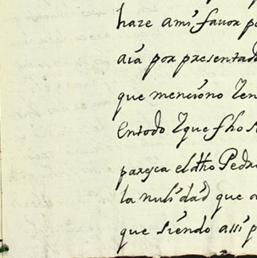 haze a mi, favor p
aia por presentado
que menciono Ten
En todo Lo que fho s
paresca el dho Pedro
la nulidad que a
que siendo assi p